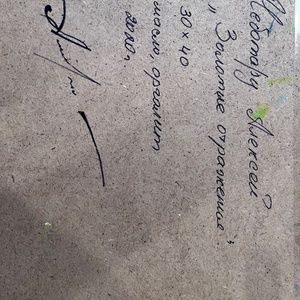 Чеботару Алексей
„Золотые отражения"
30 х 40
масло, оргалит
2020г.